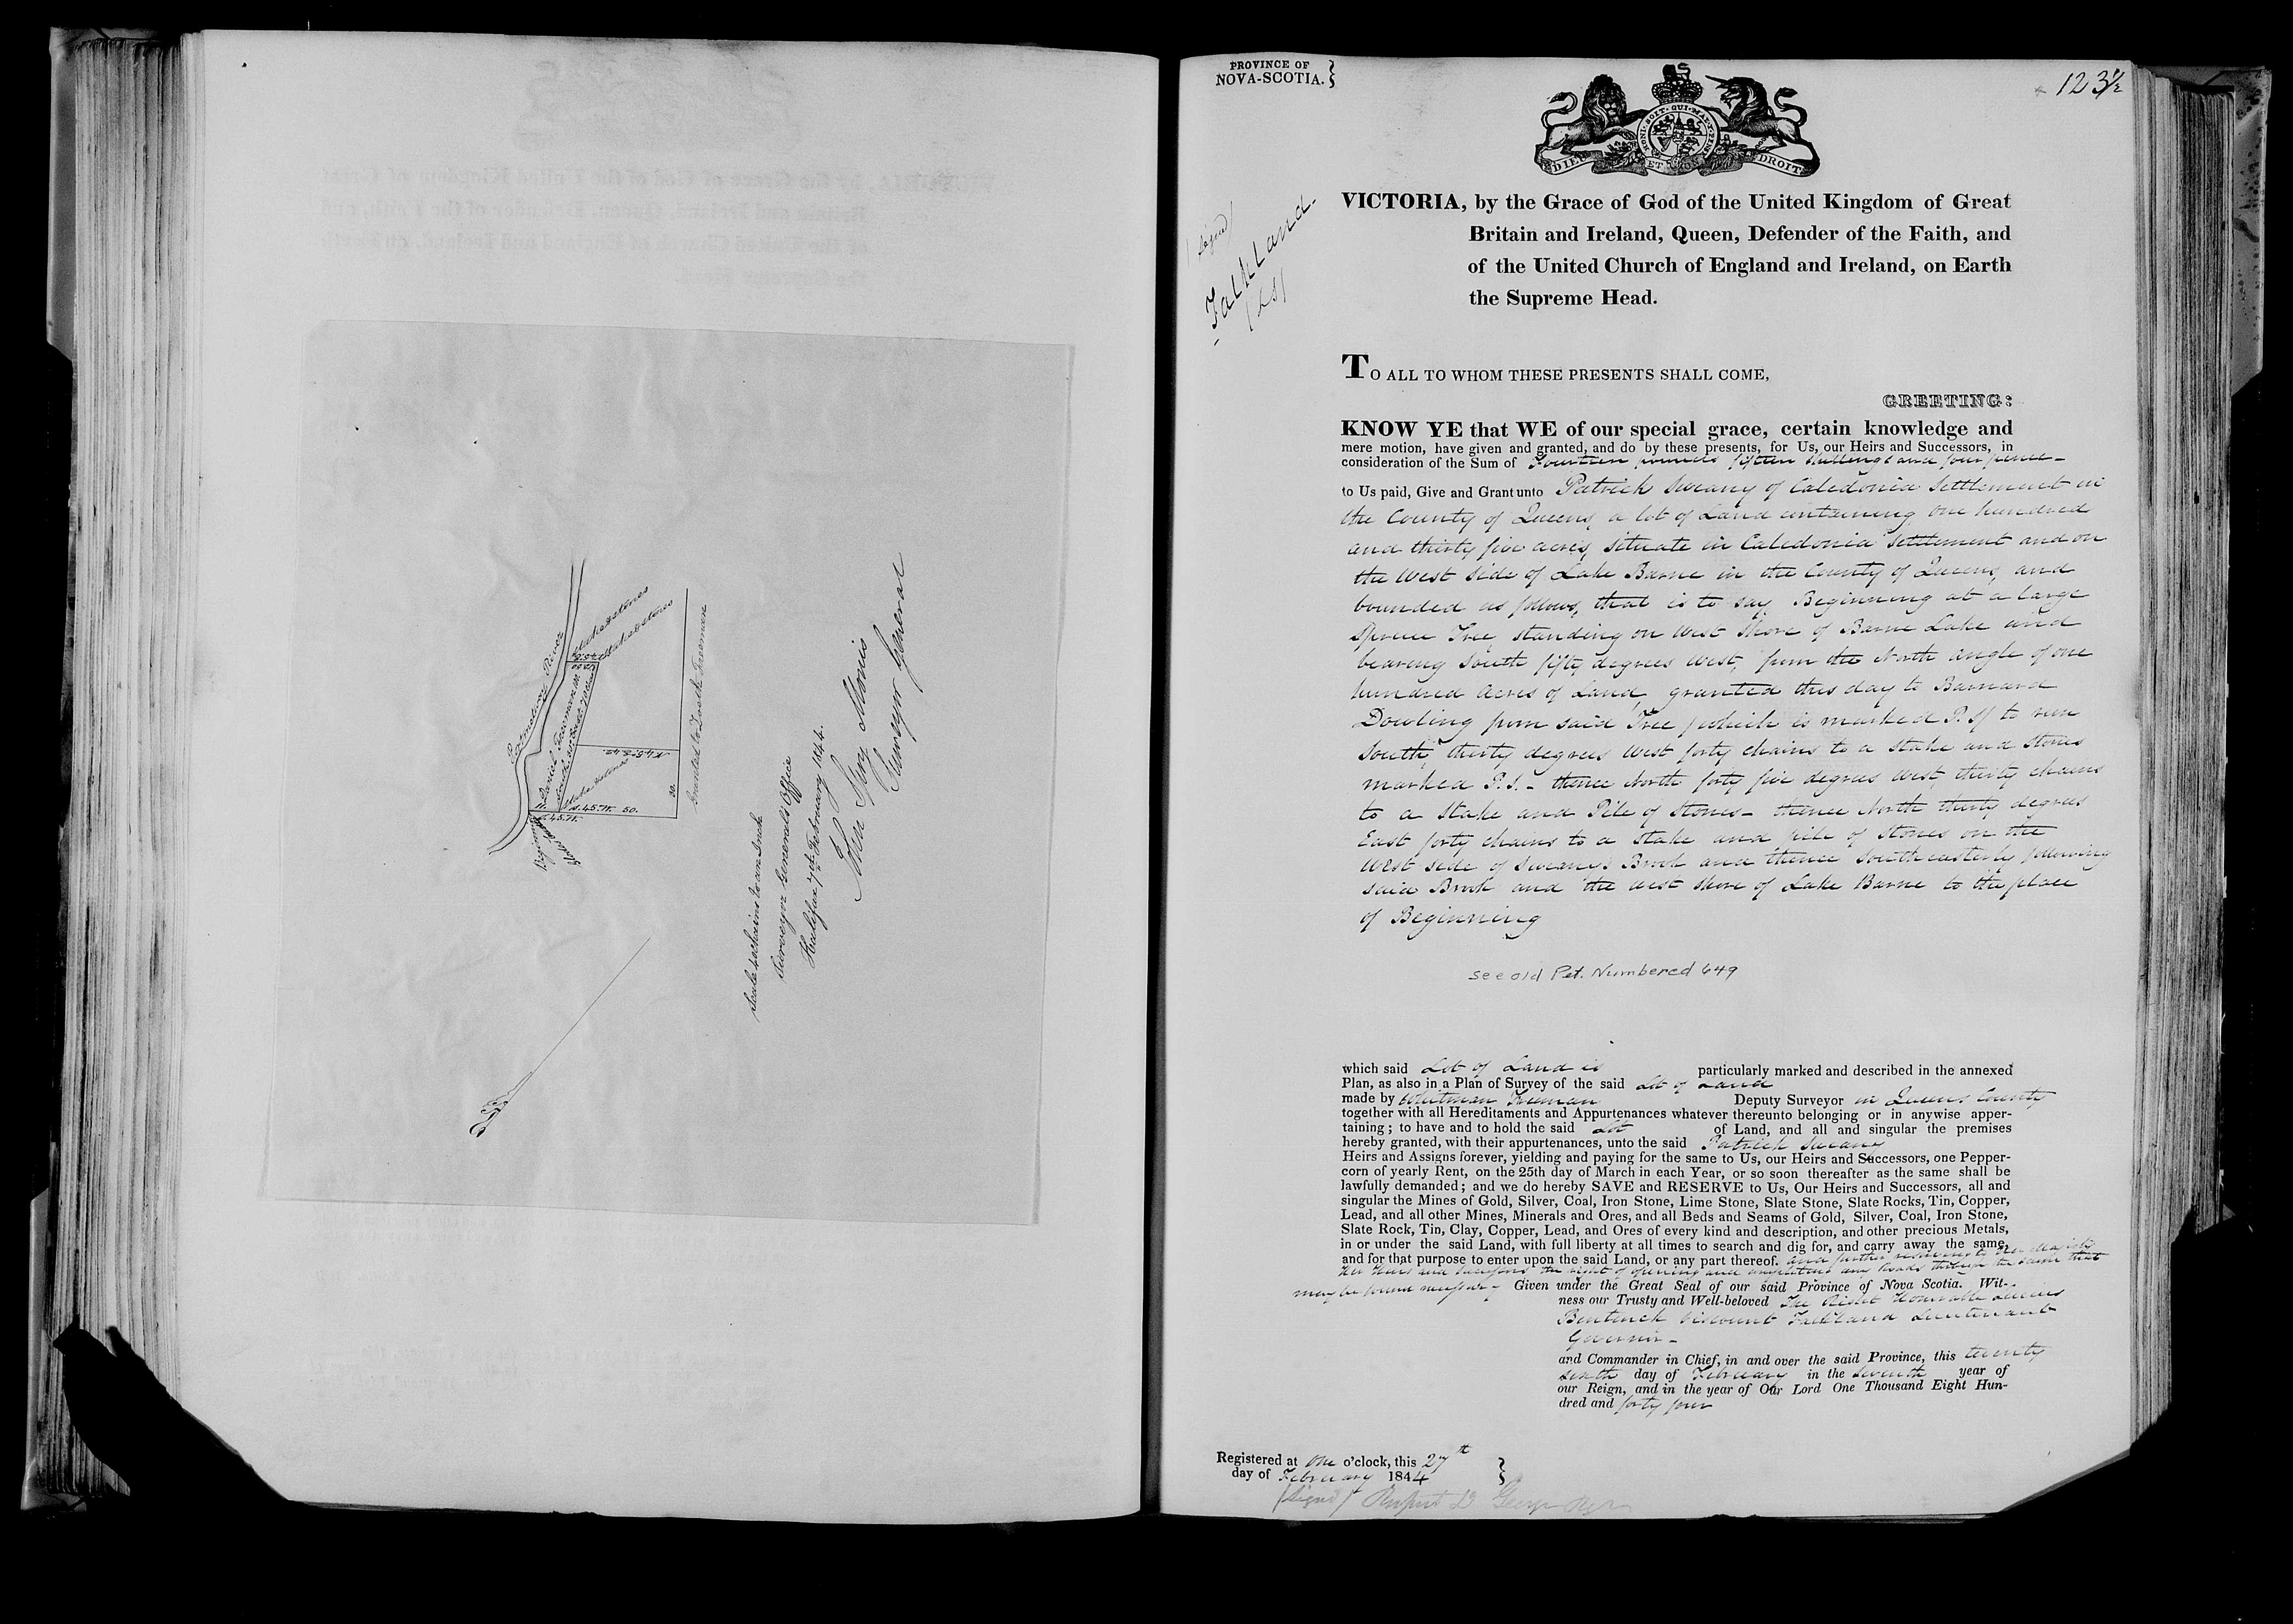 Parmstone River
Stake & stones
Stake & stones
Daniel Freeman
Stake & stones
N. 45. W. 50.
N. 45. W.
30.
Granted to Zoeth Freeman
Scale 40 chains to an Inch
Surveyor General's Office
Halifax 7th February 1844.
John Spry Morris
Surveyor General
PROVINCE OF
NOVA-SCOTIA.
123½
DIEU ET MON DROIT
HONI · SOIT · QUI · MAL · Y · PENSE
(Signed)
Falkland
(LS)
VICTORIA, by the Grace of God of the United Kingdom of Great
Britain and Ireland, Queen, Defender of the Faith, and
of the United Church of England and Ireland, on Earth
the Supreme Head.
TO ALL TO WHOM THESE PRESENTS SHALL COME,
GREETING:
KNOW YE that WE of our special grace, certain knowledge and
mere motion, have given and granted, and do by these presents, for Us, our Heirs and Successors, in
consideration of the Sum of Fourteen pounds fifteen shillings and four pence—
to Us paid, Give and Grant unto Patrick Sweany of Caledonia Settlement in
the County of Queens, a lot of Land containing one hundred
and thirty five acres, situate in Caledonia Settlement and on
the West side of Lake Barne in the County of Queens, and
bounded as follows, that is to say, Beginning at a large
Spruce Tree standing on West Shore of Barne Lake and
bearing South fifty degrees West, from the North angle of one
hundred Acres of Land, granted this day to Barnard
Dowling from said Tree (which is marked P. S) to run
South, thirty degrees West forty chains to a Stake and Stones
marked P. S. - thence North forty five degrees West, thirty chains
to a Stake and Pile of Stones - thence North thirty degrees
East forty chains to a Stake and pile of Stones on the
West side of Sweany's Brook and thence Southeasterly following
said Brook and the West Shore of Lake Barne to the place
of Beginning
see old Pet. Numbered 649
which said Lot of Land is particularly marked and described in the annexed
Plan, as also in a Plan of Survey of the said Lot of Land
made by Whitman Freeman Deputy Surveyor in Queens County
together with all Hereditaments and Appurtenances whatever thereunto belonging or in anywise apper-
taining; to have and to hold the said Lot of Land, and all and singular the premises
hereby granted, with their appurtenances, unto the said Patrick Sweany
Heirs and Assigns forever, yielding and paying for the same to Us, our Heirs and Successors, one Pepper-
corn of yearly Rent, on the 25th day of March in each Year, or so soon thereafter as the same shall be
lawfully demanded; and we do hereby SAVE and RESERVE to Us, Our Heirs and Successors, all and
singular the Mines of Gold, Silver, Coal, Iron Stone, Lime Stone, Slate Stone, Slate Rocks, Tin, Copper,
Lead, and all other Mines, Minerals and Ores, and all Beds and Seams of Gold, Silver, Coal, Iron Stone,
Slate Rock, Tin, Clay, Copper, Lead, and Ores of every kind and description, and other precious Metals,
in or under the said Land, with full liberty at all times to search and dig for, and carry away the same,
and for that purpose to enter upon the said Land, or any part thereof. and further reserving to Her Majesty
Her Heirs and Successors the right of opening and any Roads through the same that
may be found necessary Given under the Great Seal of our said Province of Nova Scotia. Wit-
ness our Trusty and Well-beloved The Right Honorable Lucius
Bentinck Viscount Falkland Lieutenant
Governor -
and Commander in Chief, in and over the said Province, this twenty
sixth day of February in the seventh year of
our Reign, and in the year of Our Lord One Thousand Eight Hun-
dred and forty four
Registered at One o'clock, this 27th
day of February 1844
(Signed) Rupert D George Regr